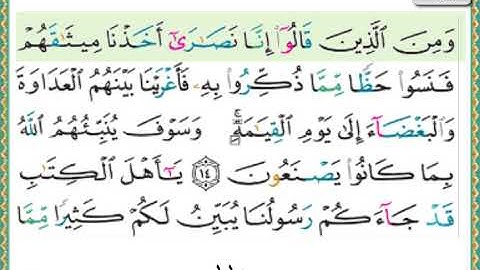 وَمِنَ الَّذِينَ قَالُوٓا۟ إِنَّا نَصَـٰرَىٰٓ أَخَذْنَا مِيثَـٰقَهُمْ
فَنَسُوا۟ حَظًّا مِّمَّا ذُكِّرُوا۟ بِهِۦ فَأَغْرَيْنَا بَيْنَهُمُ الْعَدَاوَةَ
وَالْبَغْضَآءَ إِلَىٰ يَوْمِ الْقِيَـٰمَةِ ۚ وَسَوْفَ يُنَبِّئُهُمُ اللَّهُ
بِمَا كَانُوا۟ يَصْنَعُونَ ١٤ يَـٰٓأَهْلَ الْكِتَـٰبِ
قَدْ جَآءَكُمْ رَسُولُنَا يُبَيِّنُ لَكُمْ كَثِيرًا مِّمَّا
١١٠